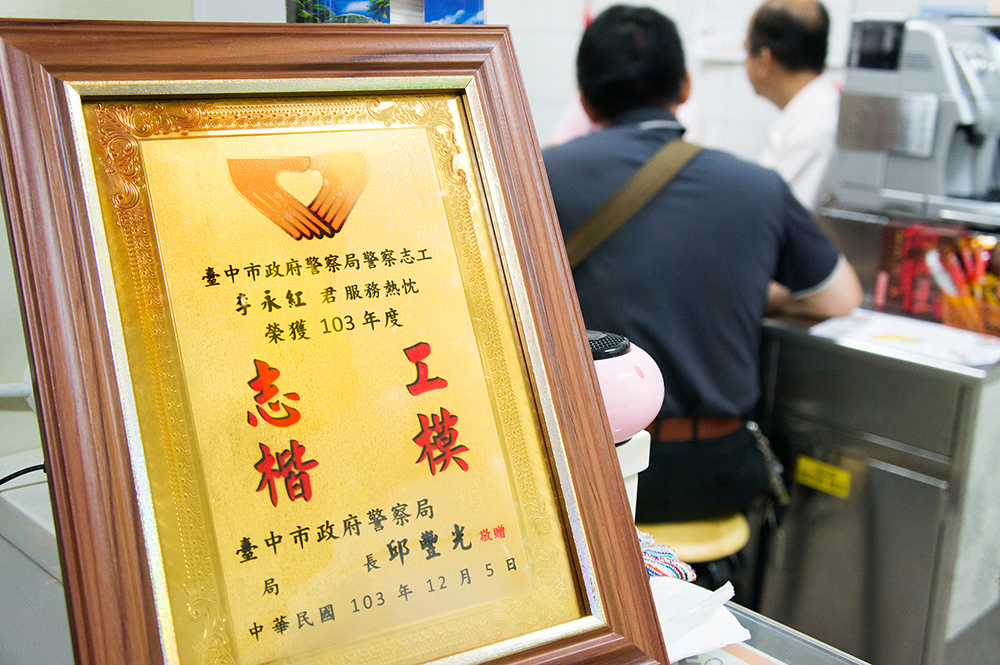 臺中市政府警察局警察志工
李永紅 君服務熱忱
榮獲 103 年度
志 工
楷 模
臺中市政府警察局
局 長 邱豐光 敬贈
中華民國 103 年 12 月 5 日